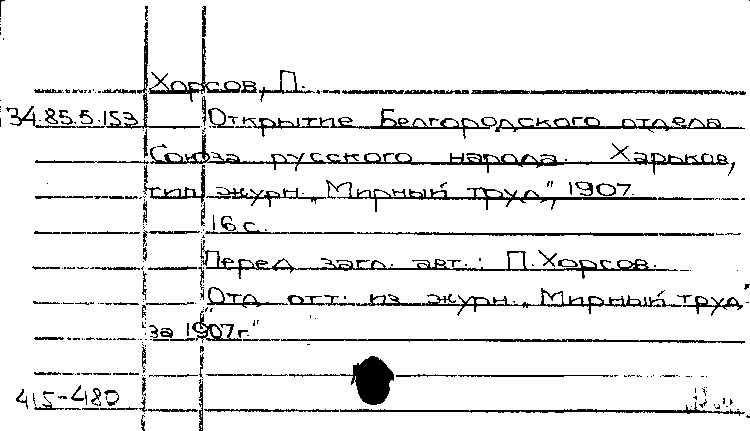 Хорсов, П.
34.85.5.153 Открытие Белгородского отдела
Союза русского народа. Харьков,
тип. журн. „Мирный труд", 1907.
16 с.
Перед загл. авт.: П. Хорсов.
"Отд. отт. из журн. „Мирный труд"
за 1907г."
415-480